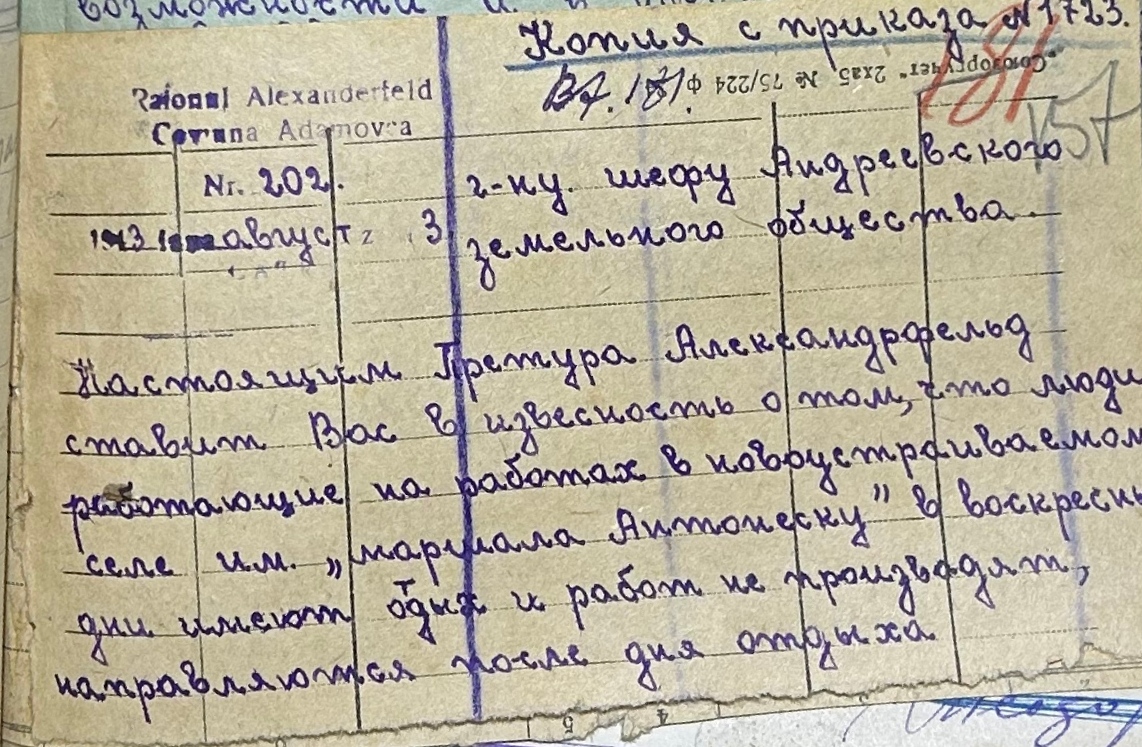 возможности и
Копия с приказа №1723.
"Союзоргучет" 2ха5. № 75/224 ф
181
157
Raionul Alexanderfeld
Comuna Adamovca
Nr. 202.
г-ну. шефу Андреевского
1943 август 3
земельного общества.
Настоящим Претура Александрфельд
ставит Вас в извесность о том, что люди
работающие на работах в новоустраиваемом
селе им. „маршала Антонеску" в воскресн
дни имеют одых и работ не производят,
направляются после дня отдыха
5
4